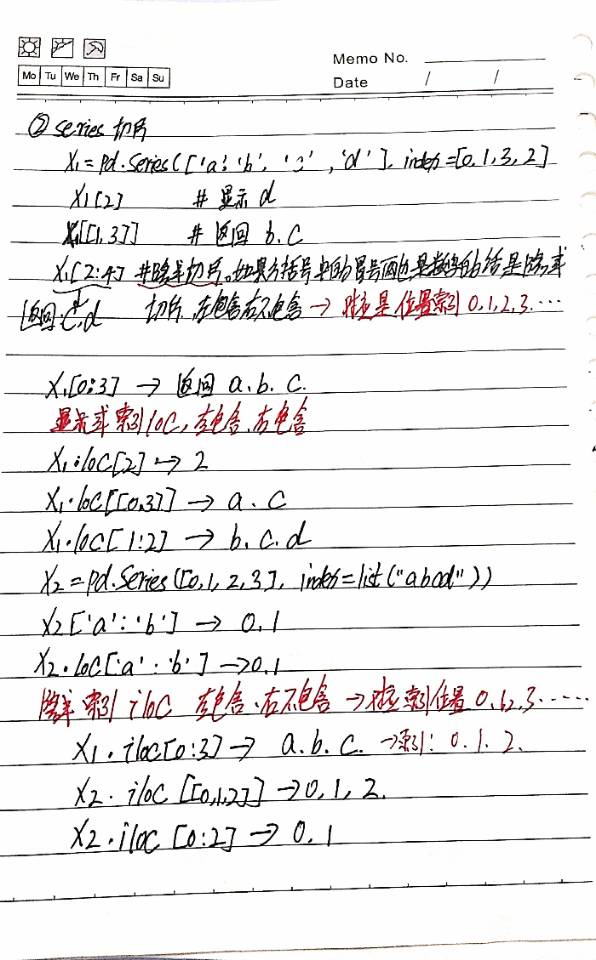 Memo No.
Mo Tu We Th Fr Sa Su
Date / /
② series 切片
X1 = pd.Series(['a', 'b', 'c', 'd'], index=[0,1,3,2]
X1[2] # 显示 d
X1[[1,3]] # 返回 b.c
X1[2:4] #隐式切片,如果方括号中的冒号两边是数字的话是隐式
返回 c,d 切片,左包含右不包含 → 对应是位置索引 0,1,2,3....
X1[0:3] → 返回 a.b.c.
显示式索引loc,左包含,右包含
X1.loc[2] → 2
X1.loc[[0,3]] → a.c
X1.loc[1:2] → b.c.d
X2 = pd.Series([0,1,2,3], index=list("abcd"))
X2['a':'b'] → 0.1
X2.loc['a':'b'] → 0.1
隐式索引 iloc 左包含、右不包含 → 对应索引位置 0,1,2,3......
X1.iloc[0:3] → a.b.c. → 索引: 0.1.2.
X2.iloc[[0,1,2]] → 0,1,2.
X2.iloc[0:2] → 0.1